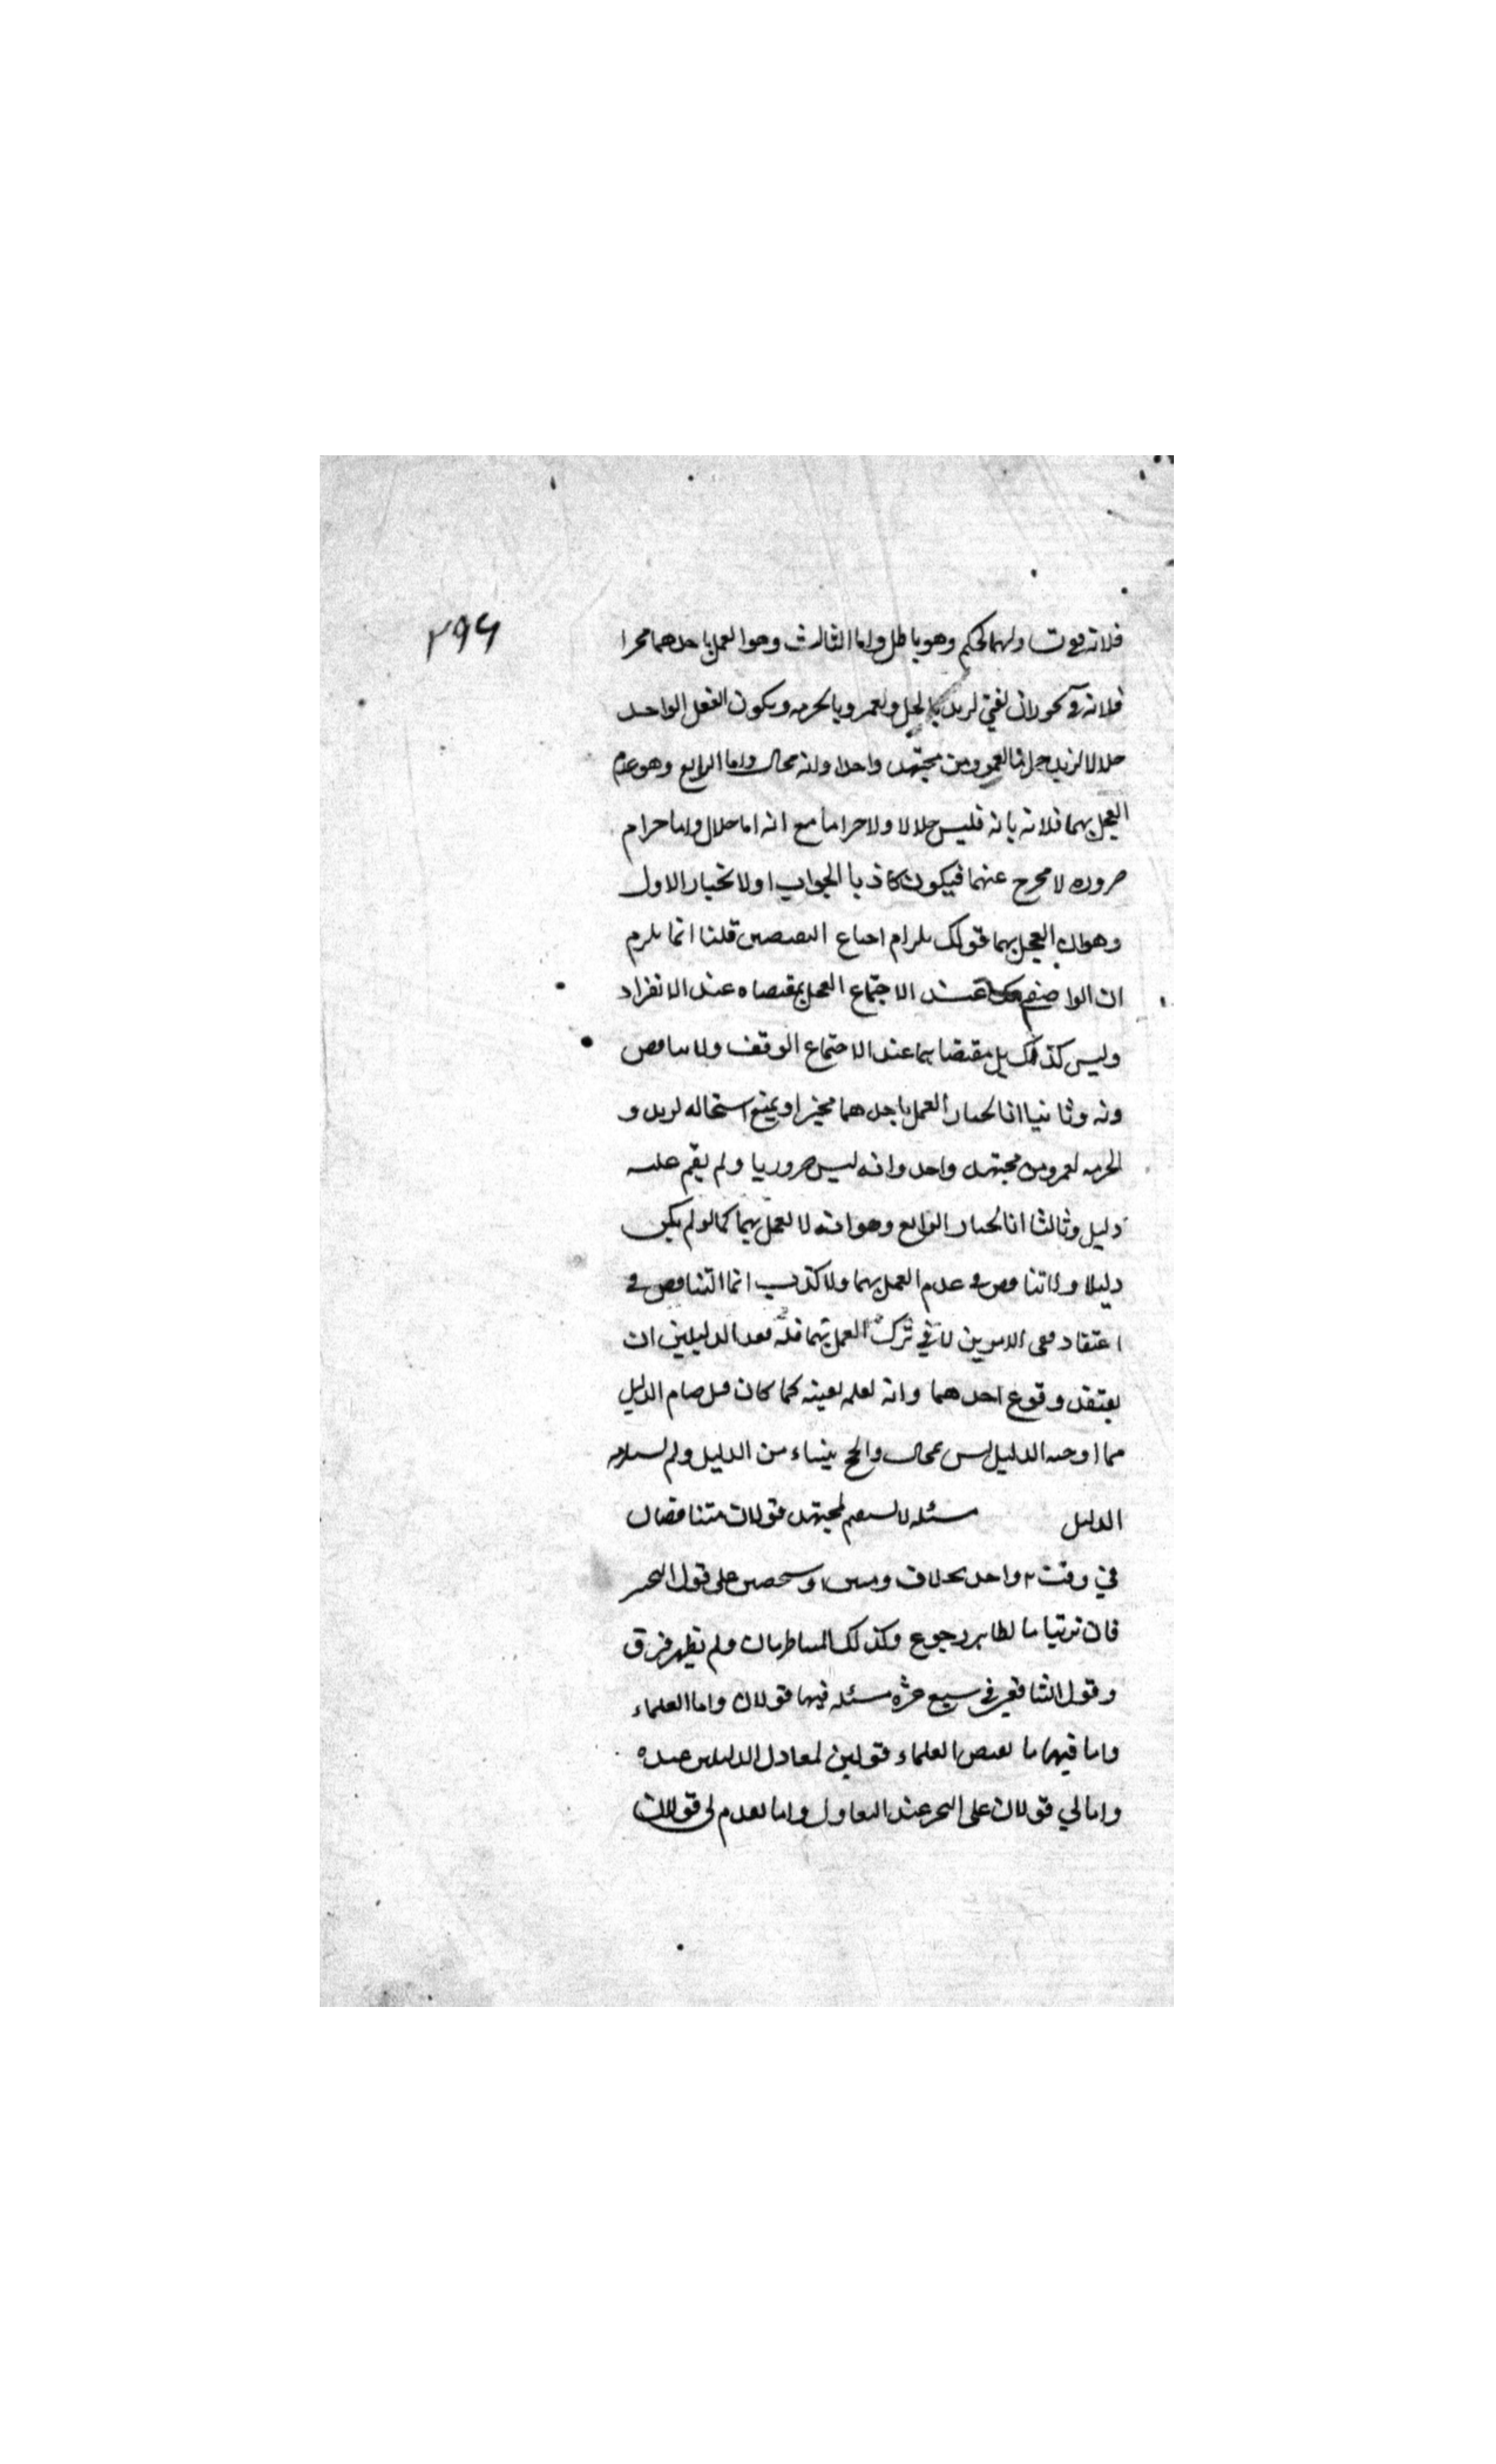 ٢٩٦
وهو باطل واما الثالث وهو العمل باحدهما مخيرا
ويكون الفعل الواحد
حلالا لزيد من مجتهد واحد وانه محال واما الرابع وهو عدم
العمل بهما فلانه بانه فليس حلالا ولا حراما مع انه اما حلال واما حرام
ضروره لا مخرج عنهما فيكون كاذبا الجواب اولا نختار الاول
وهو ان العمل بهما قولك يلزم اجتماع النقيضين قلنا انما يلزم
ان عند الاجتماع العمل بمقتضاه عند الانفراد
وليس كذلك بل مقتضاهما عند الاجتماع الوقف ولا تناقض
وثانيا انا نختار العمل باحدهما مخيرا ويمنع استحاله لزيد و
الحرمه لعمرو من مجتهد واحد وانه ليس ضروريا ولم يقم عليه
دليل وثالثا انا نختار الرابع وهو انه لا يعمل بهما كما لو لم يكن
دليلا ولا تناقض في عدم العمل بهما ولا كذب انما التناقض في
اعتقاد نفي الامرين لا في ترك العمل بهما الدليلين ان
يعتقد وقوع احدهما وانه لعلمه بعينه كما كان قبل قيام الدليل
الدليل ليس محال من الدليل ولم
الدليل مسئله لا يستقيم لمجتهد قولان متناقضان
في وقت واحد بخلاف وقتين او شخصين على قول التخيير
فان ترتبا فالظاهر رجوع وكذلك المتناظرتان ولم يظهر فرق
وقول الشافعي في سبع عشره مسئله فيها قولان واما العلماء
واما فيها ما لبعض العلماء قولين لتعادل الدليلين عنده
واما لي قولان على التخيير عند التعادل واما تقدم لي قولان